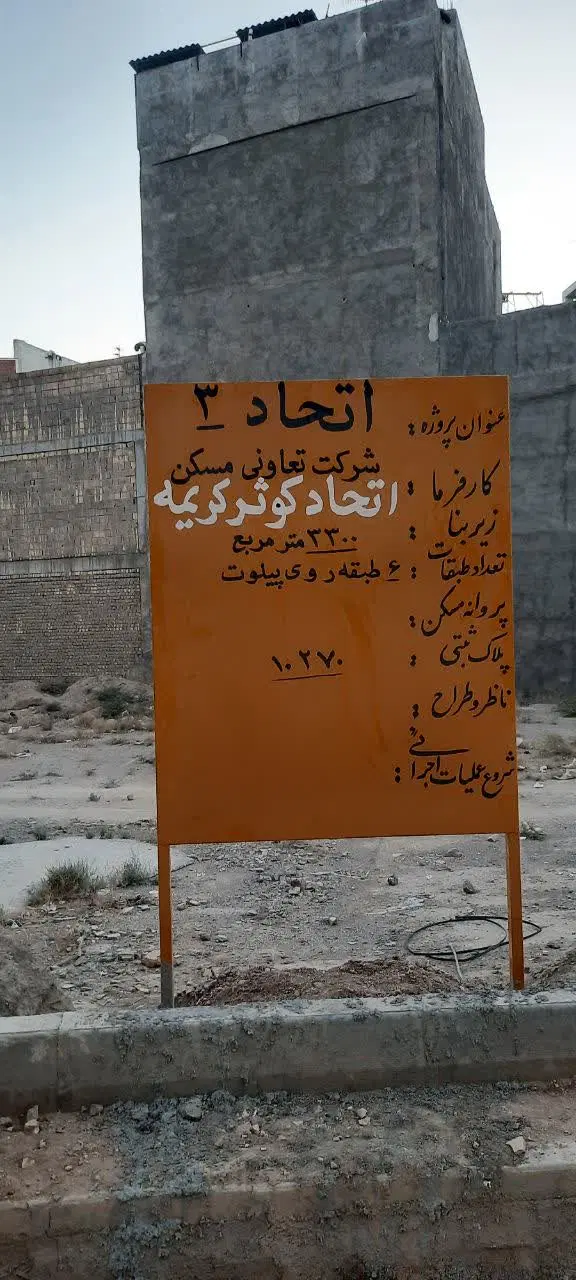 عنوان پروژه : اتحاد ۳
کارفرما : شرکت تعاونی مسکن
اتحاد کوثر کریمه
زیر بنا : ۳۳۰۰ متر مربع
تعداد طبقات : ۶ طبقه روی پیلوت
پروانه سکن :
پلاک ثبتی : ۱۰۲۷۰
ناظر و طراح :
شروع عملیات اجرائی :